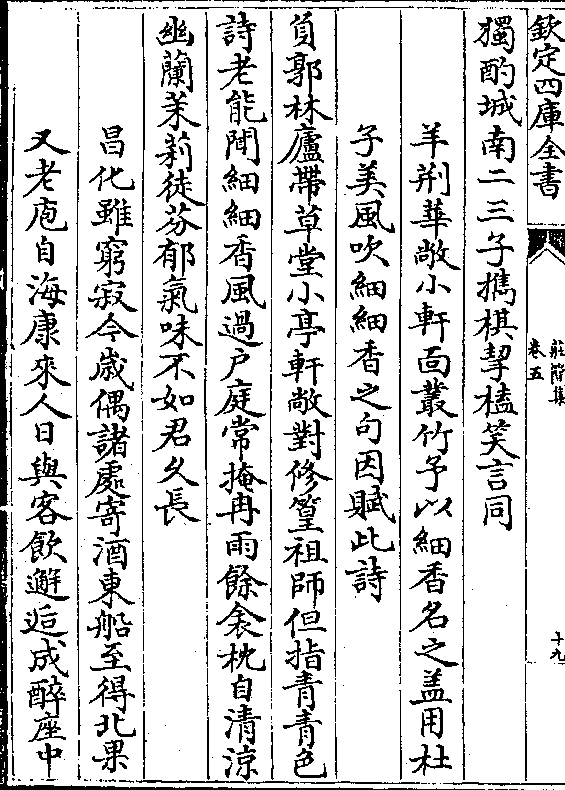 欽定四庫全書
莊簡集
卷五
十九
獨酌城南二三子攜棋挈榼笑言同
羊荆華敞小軒面叢竹予以細香名之盖用杜
子美風吹細細香之句因賦此詩
負郭林廬帶草堂小亭軒敞對修篁祖師但指青青色
詩老能聞細細香風過户庭常掩冉雨餘衾枕自清涼
幽蘭茉莉徒芬郁氣味不如君久長
昌化雖窮寂今歲偶諸處寄酒東船至得北果
又老庖自海康來人日與客飲邂逅成醉座中